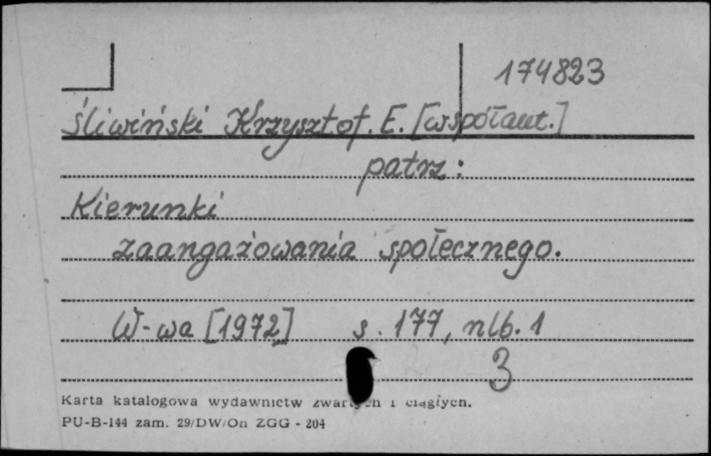 174823
Śliwiński Krzysztof. E. [współaut.]
patrz:
Kierunki
zaangażowania społecznego.
W-wa [1972] s. 177, nlb. 1
3
Karta katalogowa wydawnictw zwartych i ciągłych.
PU-B-144 zam. 29/DW/On ZGG - 204